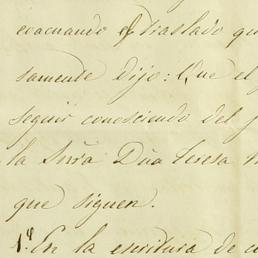 evacuando el traslado qu
samente dijo: Que el
seguir conosciendo del
la Snrã Dña Teresa
que siguen.
1ª En la escritura de